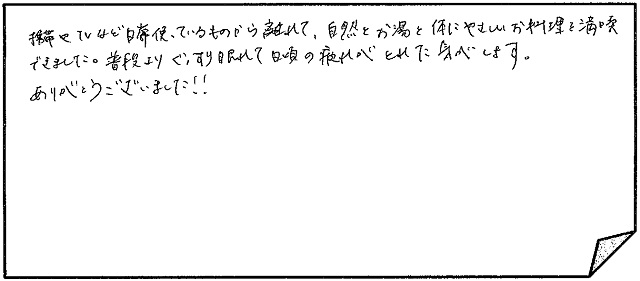 携帯やTVなど日常使っているものから離れて、自然とお湯と体にやさしいお料理を満喫
できました。普段よりぐっすり眠れて日頃の疲れがとれた気がします。
ありがとうございました!!